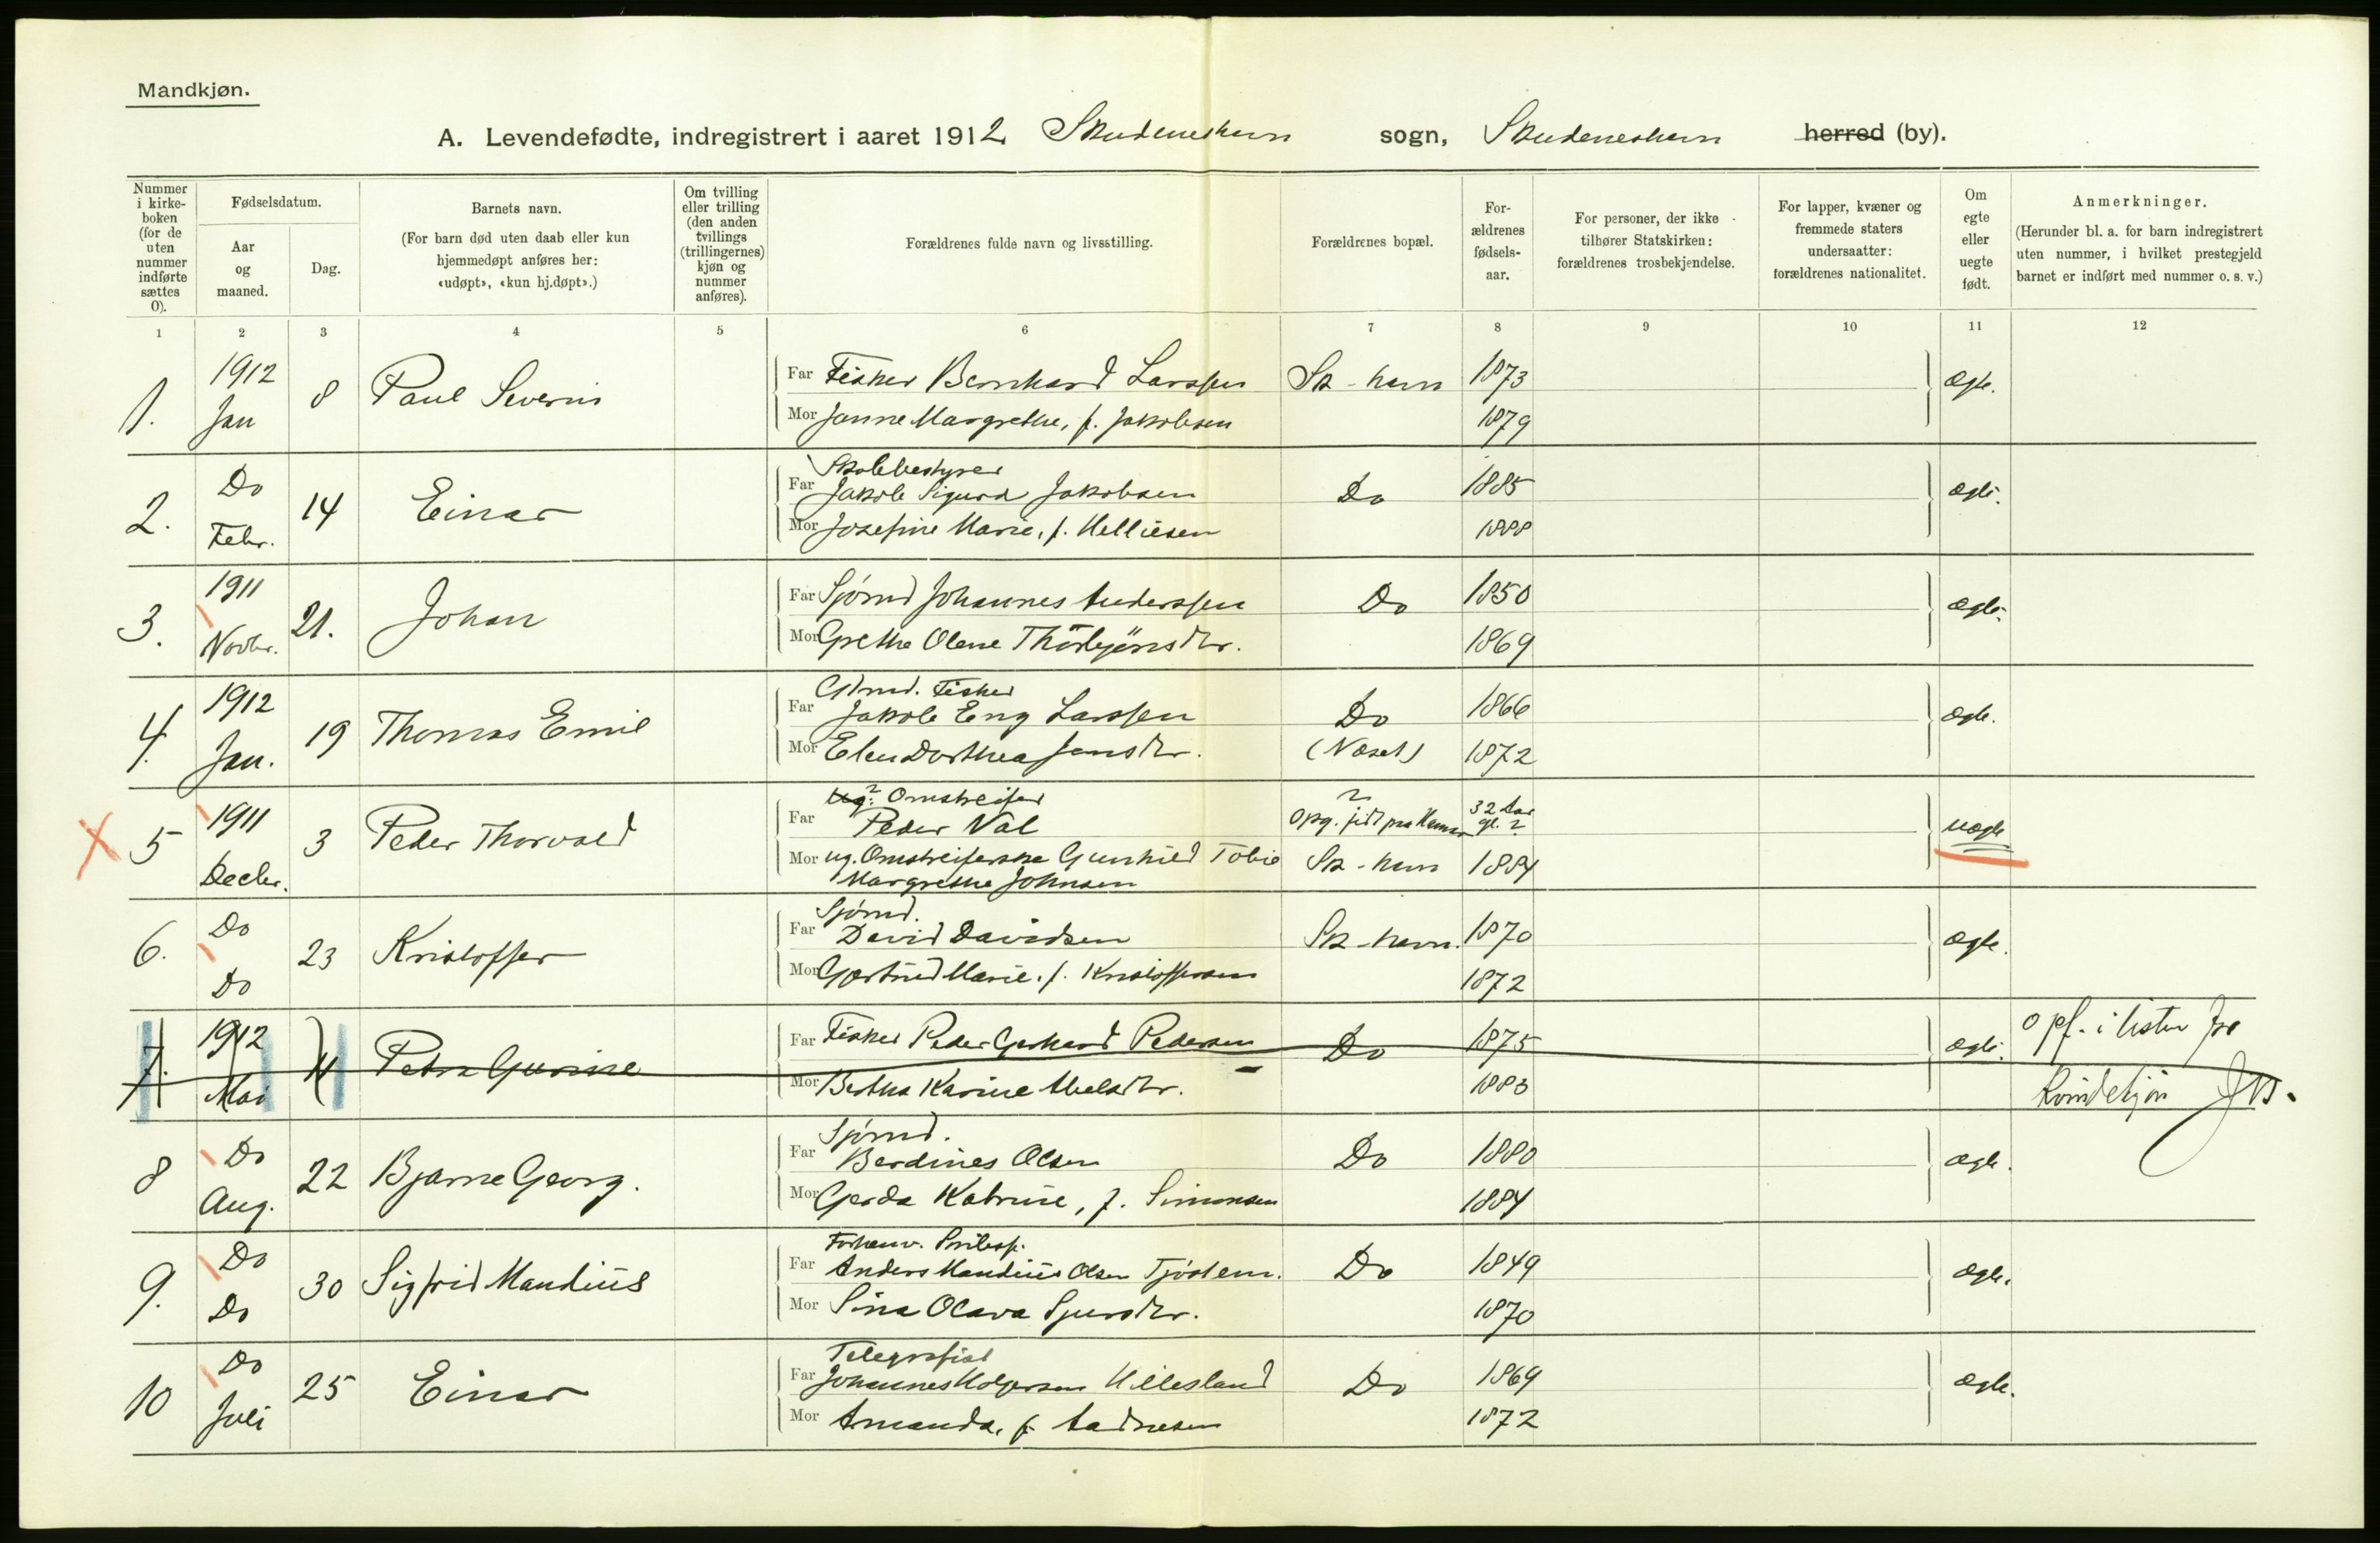 Mandkjøn.
A. Levendefødte, indregistrert i aaret 1912 Skudeneshavn sogn, Skudeneshavn herred (by).
Nummer i kirkeboken (for de uten nummer indførte sættes 0).
Fødselsdatum.
Aar og maaned.
Dag.
Barnets navn.
(For barn død uten daab eller kun hjemmedøpt anføres her: «udøpt», «kun hj.døpt».)
Om tvilling eller trilling (den anden tvillings (trillingernes) kjøn og nummer anføres).
Forældrenes fulde navn og livsstilling.
Forældrenes bopæl.
For-
ældrenes
fødsels-
aar.
For personer, der ikke
tilhører Statskirken:
forældrenes trosbekjendelse.
For lapper, kvæner og
fremmede staters
undersaatter:
forældrenes nationalitet.
Om
egte
eller
uegte
født.
Anmerkninger.
(Herunder bl. a. for barn indregistrert
uten nummer, i hvilket prestegjeld
barnet er indført med nummer o. s. v.)
1 2 3 4 5 6 7 8 9 10 11 12
1. 1912 Jan 8 Paul Severin
Far Fisker Bernhard Larssen Sk-havn 1873 ægte.
Mor Janne Margrethe, f. Jakobsen 1879
2. Do Febr. 14 Einar
Far Skolebestyrer Jakob Sigurd Jakobsen Do 1885 ægte.
Mor Josefine Marie, f. Helliesen 1888
3. 1911 Novbr. 21. Johan
Far Sjømd Johannes Anderssen Do 1850 ægte.
Mor Grethe Olene Thorbjørnsdtr. 1869
4. 1912 Jan. 19 Thomas Emil
Far Gdmd. Fisker Jakob Eng Larssen Do 1866 ægte.
Mor Elen Dorthea Jensdtr. (Næset) 1872
5 1911 Decbr. 3 Peder Thorvald
Far Ug. ? Omstreifer Peder Nal ? Opg. født paa Hamar 32 Aar gl. ? uægte
Mor ug. Omstreiferske Gunhild Tobie Margrethe Johnsen Sk-havn 1884
6. Do Do 23 Kristoffer
Far Sjømd. David Davidsen Sk-havn. 1870 ægte.
Mor Gjertrud Marie. f. Kristoffersen 1872
7. 1912 Mai 11 Petra Gurine
Far Fisker Peder Gerhard Pedersen Do 1875 ægte. opf. i listen for
Mor Bertha Karine Abelsdtr. 1883 kvindekjøn
8 Do Aug. 22 Bjarne Georg.
Far Sjømd. Berdines Olsen Do 1880 ægte.
Mor Gerda Katrine, f. Simonsen 1884
9. Do Do 30 Sigfrid Mandius
Far Forhenv. Anders Mandius Olsen Tjøstem. Do 1849 ægte.
Mor Sina Olava Sjursdtr. 1870
10 Do Juli 25 Einar
Far Telegrafist Johannes Holgersen Hillesland Do 1869 ægte.
Mor Amanda, f. Aadnesen 1872